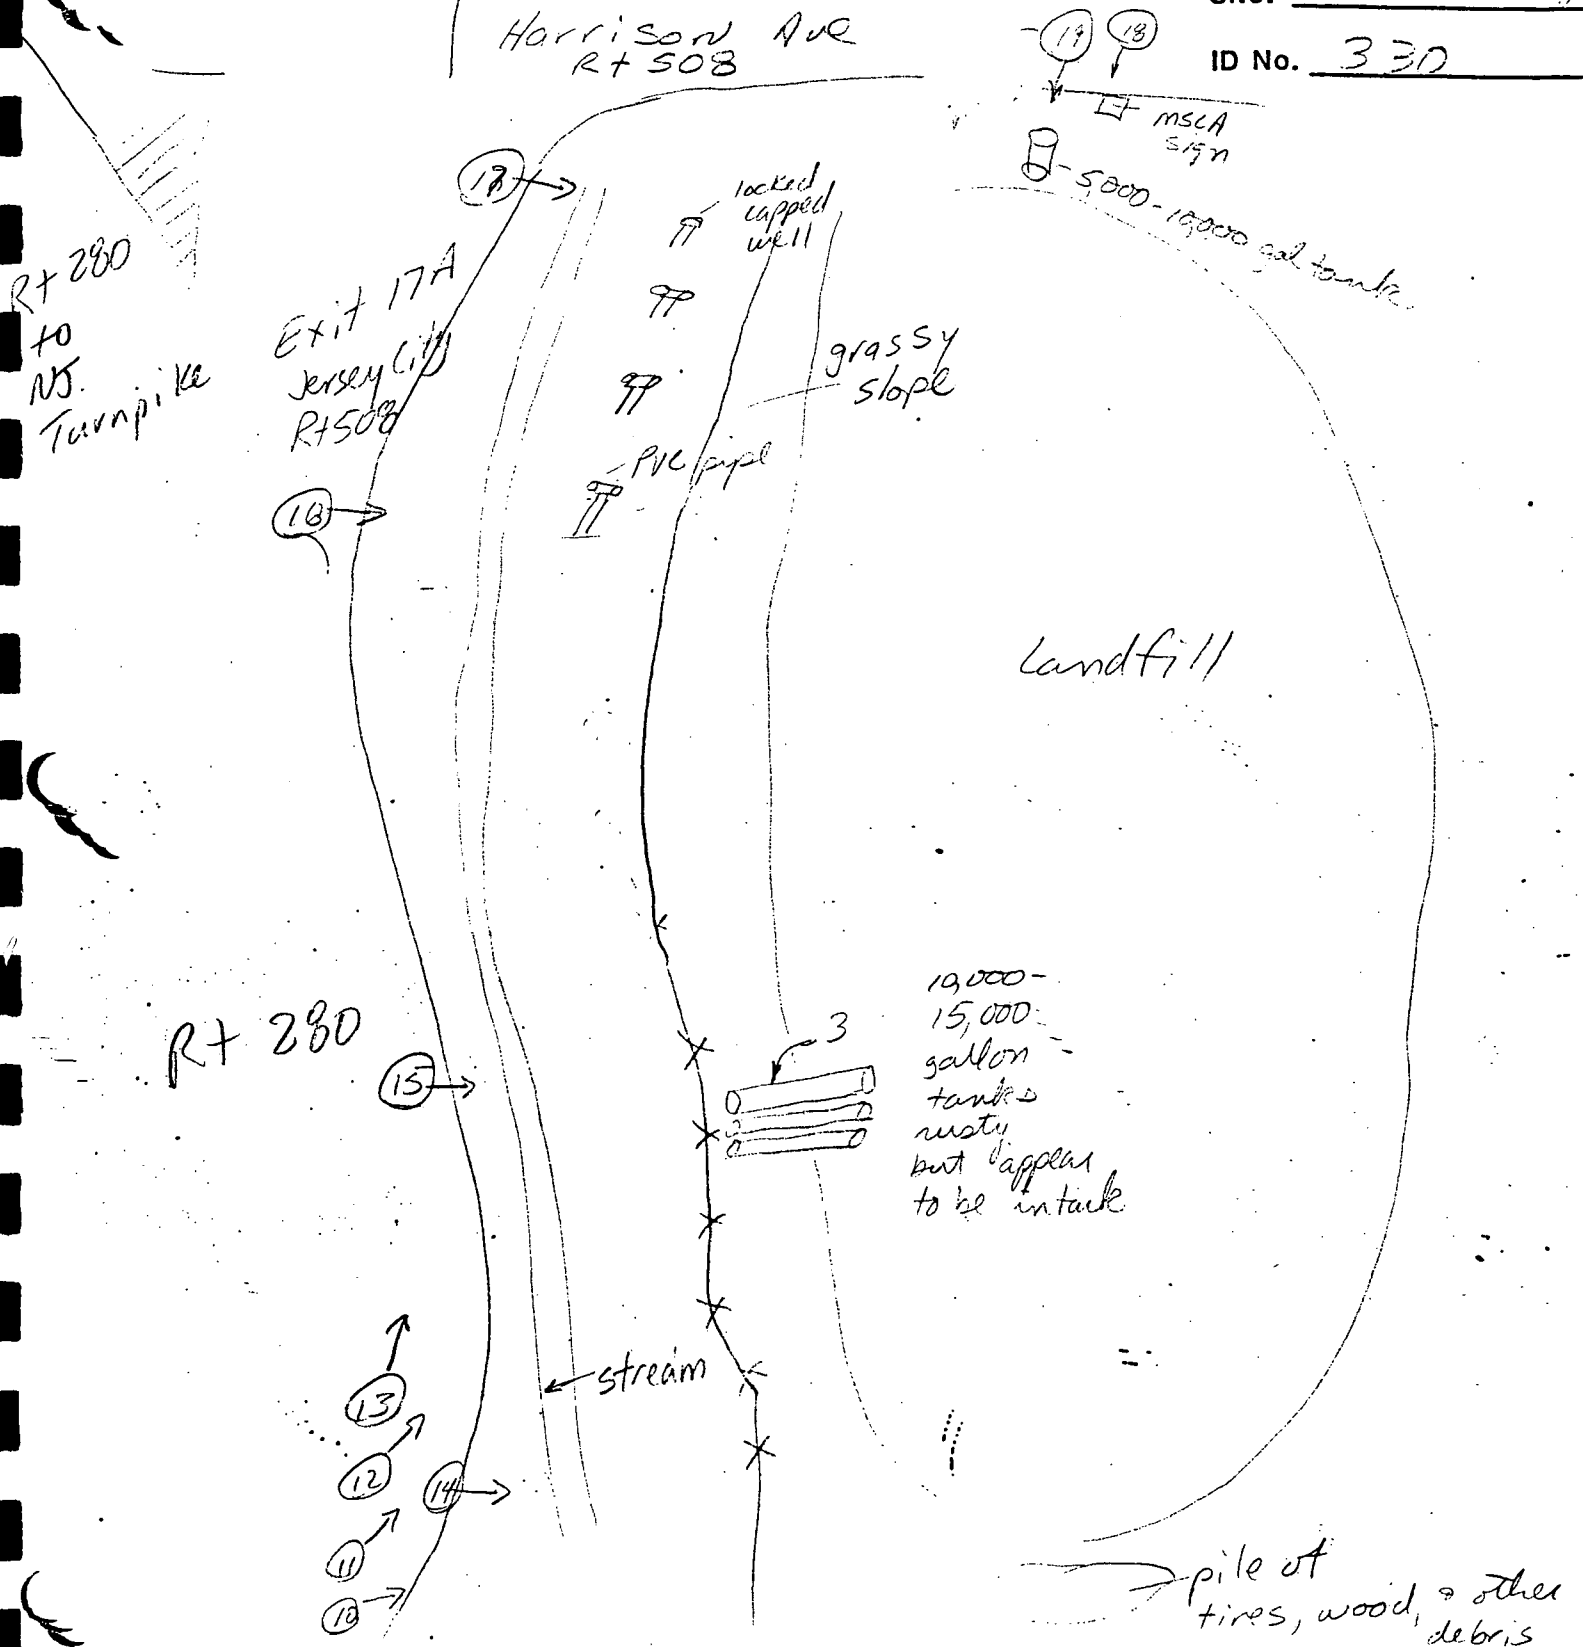 Harrison Ave
Rt 508
ID No. 330
19
18
MSLA
sign
5,000-10,000 gal tank
locked
capped
well
Rt 280
to
NJ.
Turnpike
Exit 17A
Jersey City
Rt 508
grassy
slope
PVC pipe
16
Landfill
10,000-
15,000
gallon
tanks
rusty
but appear
to be intack
3
Rt 280
15
stream
13
12
14
11
10
pile of
tires, wood, & other
debris